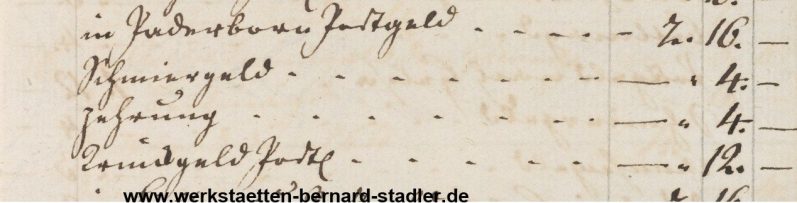 in Paderborn Postgeld - - - - - 2.. 16. —
Schmiergeld - - - - - - - — " 4. —
zehrung - - - - - - - — " 4. —
Trinkgeld Postl - - - - - - — " 12. —
www.werkstaetten-bernard-stadler.de